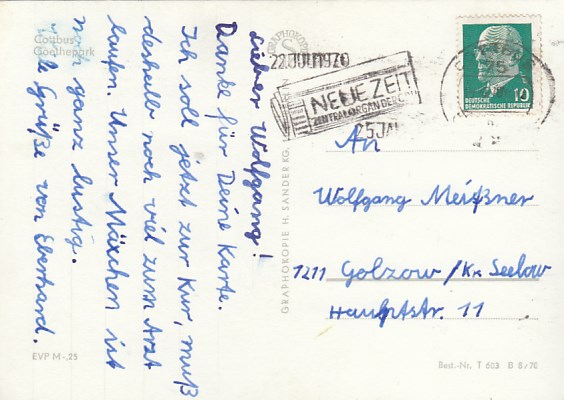 Cottbus
Goethepark
Lieber Wolfgang!
Danke für Deine Karte.
Ich soll jetzt zur Kur, muß
deshalb noch viel zum Arzt
laufen. Unser Märchen ist
noch ganz lustig.
Grüße von Eberhard.
EVP M -,25
GRAPHOKOPIE H. SANDER KG,
NEUE ZEIT
ZENTRALORGAN DER CDU
DEUTSCHE
DEMOKRATISCHE REPUBLIK
10
An
Wolfgang Meißner
1211 Golzow /Kr. Seelow
Hauptstr. 11
Best.-Nr. T 603 B 8/70